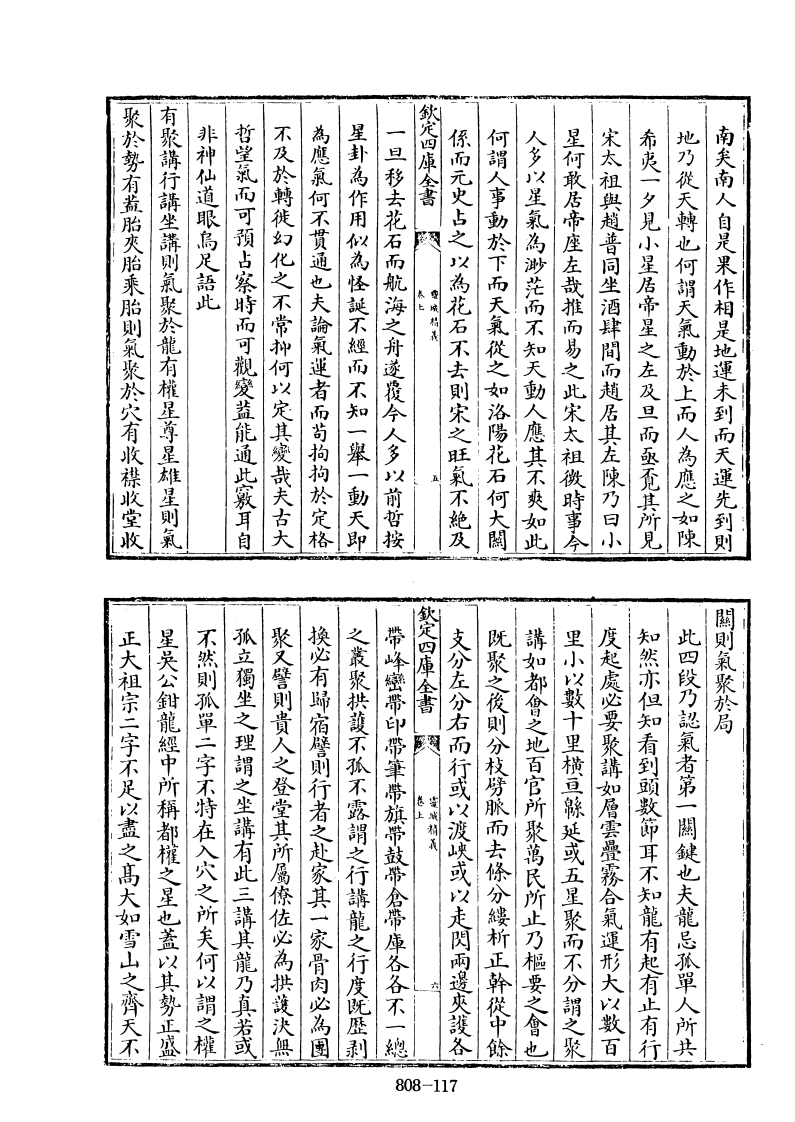 南矣南人自是果作相是地運未到而天運先到則
地乃從天轉也何謂天氣動於上而人為應之如陳
希夷一夕見小星居帝星之左及旦而亟覔其所見
宋太祖與趙普同坐酒肆間而趙居其左陳乃曰小
星何敢居帝座左哉推而易之此宋太祖微時事今
人多以星氣為渺茫而不知天動人應其不爽如此
何謂人事動於下而天氣從之如洛陽花石何大關
係而元史占之以為花石不去則宋之旺氣不絶及
欽定四庫全書
靈城精義
卷上
五
一旦移去花石而航海之舟遂覆今人多以前哲按
星卦為作用似為怪誕不經而不知一舉一動天即
為應氣何不貫通也夫論氣運者而茍拘拘於定格
不及於轉徙幻化之不常抑何以定其變哉夫古大
哲望氣而可預占察時而可觀變葢能通此竅耳自
非神仙道眼烏足語此
有聚講行講坐講則氣聚於龍有權星尊星雄星則氣
聚於勢有葢胎夾胎乘胎則氣聚於穴有收襟收堂收
關則氣聚於局
此四段乃認氣者第一關鍵也夫龍忌孤單人所共
知然亦但知看到頭數節耳不知龍有起有止有行
度起處必要聚講如層雲疊霧合氣運形大以數百
里小以數十里橫亘緜延或五星聚而不分謂之聚
講如都會之地百官所聚萬民所止乃樞要之會也
既聚之後則分枝劈脈而去條分縷析正幹從中餘
支分左分右而行或以渡峽或以走閃兩邊夾護各
欽定四庫全書
靈城精義
卷上
六
帶峰巒帶印帶筆帶旗帶鼓帶倉帶庫各各不一總
之叢聚拱護不孤不露謂之行講龍之行度既歷剥
換必有歸宿譬則行者之赴家其一家骨肉必為團
聚又譬則貴人之登堂其所屬僚佐必為拱護決無
孤立獨坐之理謂之坐講有此三講其龍乃真若或
不然則孤單二字不特在入穴之所矣何以謂之權
星吳公鉗龍經中所稱都權之星也蓋以其勢正盛
正大祖宗二字不足以盡之髙大如雪山之齊天不
808-117